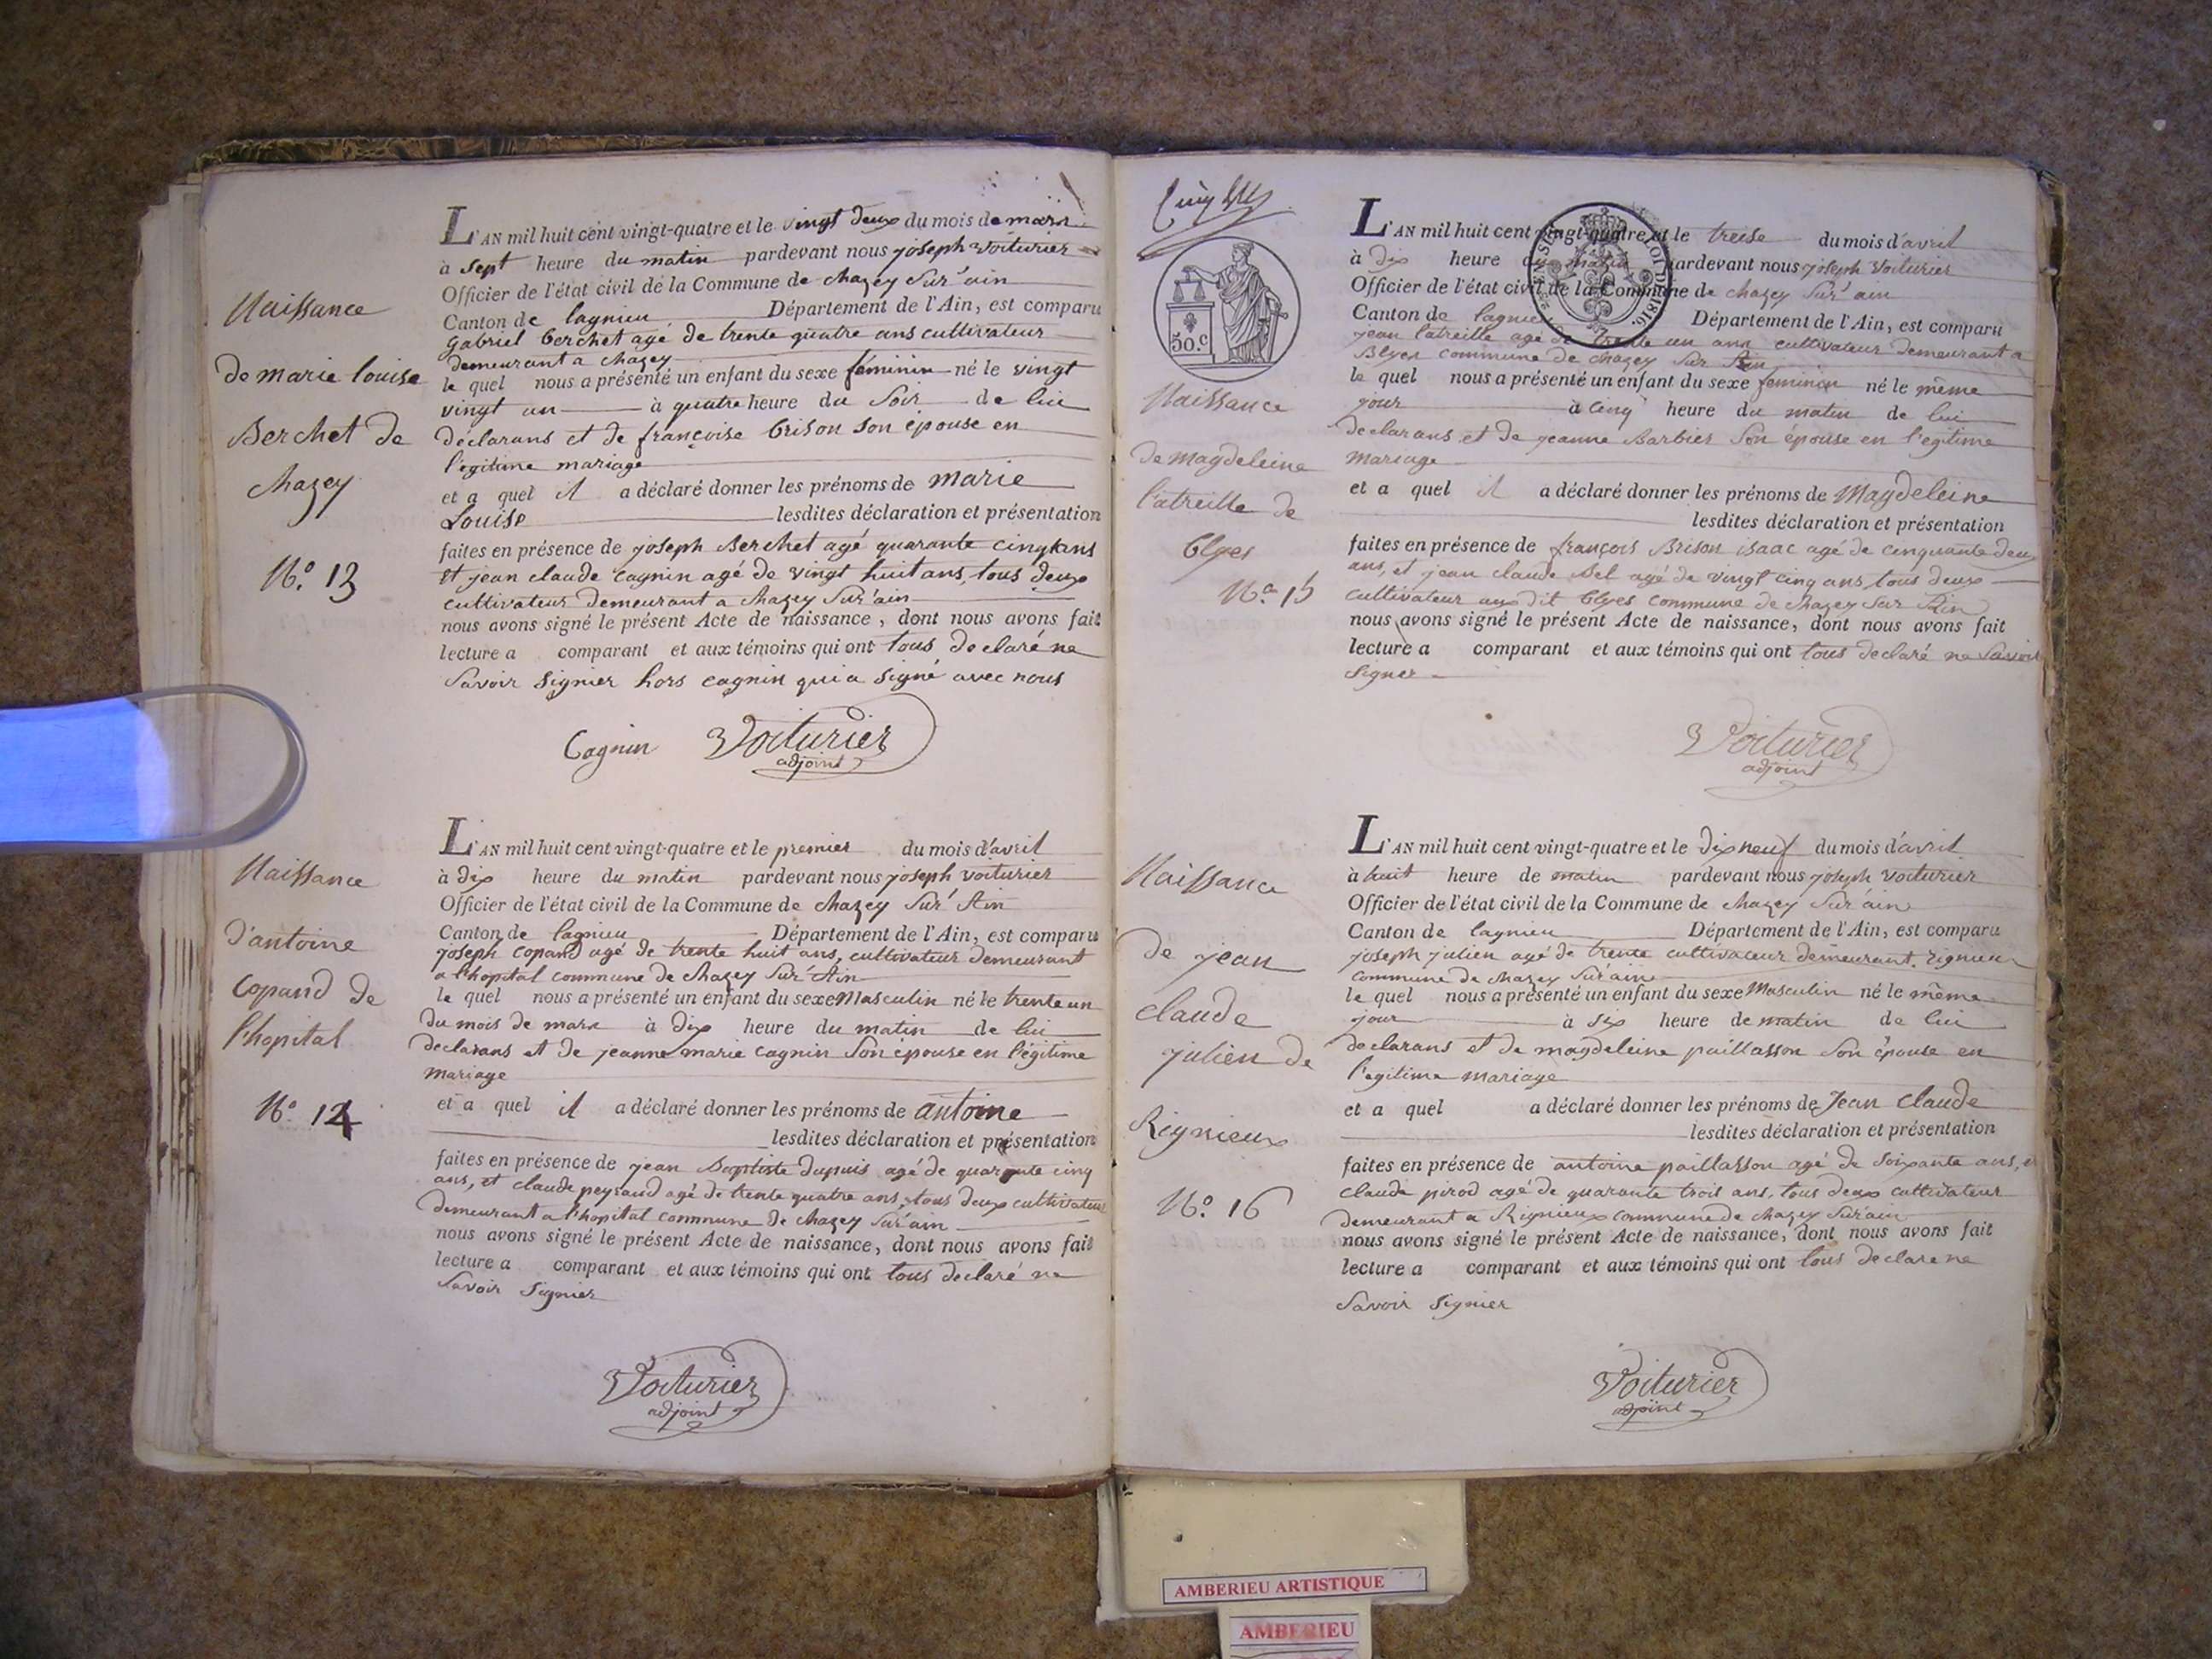 Naissance
de marie louise
Berchet de
chazey
N.o 13
L'AN mil huit cent vingt-quatre et le vingt deux du mois de mars
à sept heure du matin pardevant nous joseph Voiturier
Officier de l'état civil de la Commune de chazey Sur'ain
Canton de lagnieu Département de l'Ain, est comparu
gabriel berchet agé de trente quatre ans cultivateur
demeurant a chazey
le quel nous a présenté un enfant du sexe féminin né le vingt
vingt un à quatre heure du Soir de lui
déclarans et de françoise brison son épouse en
l'égitime mariage
et a quel il a déclaré donner les prénoms de marie
Louise lesdites déclaration et présentation
faites en présence de joseph Berchet agé quarante cinq ans
et jean claude cagnin agé de vingt huit ans, tous deux
cultivateur demeurant a chazey Sur'ain
nous avons signé le présent Acte de naissance, dont nous avons fait
lecture a comparant et aux témoins qui ont tous declaré ne
Savoir signier hors cagnin qui a signé avec nous
Cagnin Voiturier
adjoint
Naissance
d'antoine
Copand de
l'hopital
N.o 14
L'AN mil huit cent vingt-quatre et le premier du mois d'avril
à dix heure du matin pardevant nous joseph Voiturier
Officier de l'état civil de la Commune de chazey Sur'Ain
Canton de lagnieu Département de l'Ain, est comparu
joseph copand agé de trente huit ans, cultivateur demeurant
a l'hopital commune de chazey Sur'Ain
le quel nous a présenté un enfant du sexe Masculin né le trente un
du mois de mars à dix heure du matin de lui
declarans et de jeanne marie cagnin Son épouse en l'égitime
mariage
et a quel il a déclaré donner les prénoms de antoine
lesdites déclaration et présentation
faites en présence de jean Baptiste dupuis agé de quarante cinq
ans, et claude peyraud agé de trente quatre ans, tous deux cultivateur
demeurant a l'hopital commune de chazey Sur'ain
nous avons signé le présent Acte de naissance, dont nous avons fait
lecture a comparant et aux témoins qui ont tous declaré ne
Savoir Signier
Voiturier
adjoint
30.c
Naissance
de magdeleine
l'atreille de
blyes
N.o 15
L'AN mil huit cent vingt-quatre et le treise du mois d'avril
à dix heure du matin pardevant nous joseph Voiturier
Officier de l'état civil de la Commune de chazey Sur'ain
Canton de lagnieu Département de l'Ain, est comparu
jean l'atreille agé de trente un ans cultivateur demeurant a
Blyes commune de chazey Sur Ain
le quel nous a présenté un enfant du sexe feminin né le même
jour à cinq heure du matin de lui
declarans et de jeanne Barbier Son épouse en l'egitime
mariage
et a quel il a déclaré donner les prénoms de Magdeleine
lesdites déclaration et présentation
faites en présence de françois Brison isaac agé de cinquante deux
ans, et jean claude Bel agé de vingt cinq ans tous deux
cultivateur aux dit blyes commune de chazey Sur Ain
nous avons signé le présent Acte de naissance, dont nous avons fait
lecture a comparant et aux témoins qui ont tous declaré ne Savoir
signer
Voiturier
adjoint
Naissance
de jean
claude
julien de
Rignieux
N.o 16
L'AN mil huit cent vingt-quatre et le dix neuf du mois d'avril
à huit heure de matin pardevant nous joseph Voiturier
Officier de l'état civil de la Commune de chazey Sur'ain
Canton de lagnieu Département de l'Ain, est comparu
joseph julien agé de trente cultivateur demeurant. rignieux
commune de chazey Sur'ain
le quel nous a présenté un enfant du sexe Masculin né le même
jour à six heure de matin de lui
declarans et de magdeleine paillasson Son épouse en
l'egitime mariage
et a quel a déclaré donner les prénoms de Jean Claude
lesdites déclaration et présentation
faites en présence de antoine paillasson agé de soixante ans, et
claude pirod agé de quarante trois ans, tous deux cultivateur
demeurant a Rignieux commune de chazey Sur'ain
nous avons signé le présent Acte de naissance, dont nous avons fait
lecture a comparant et aux témoins qui ont tous declare ne
Savoir Signier
Voiturier
adjoint
AMBERIEU ARTISTIQUE
AMBERIEU